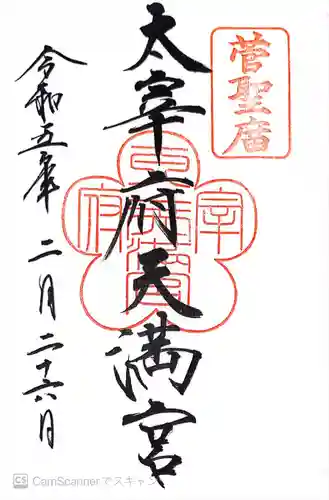 菅聖庿
太宰府天満宮
令和五年 二月二十六日
CS CamScannerでスキャン